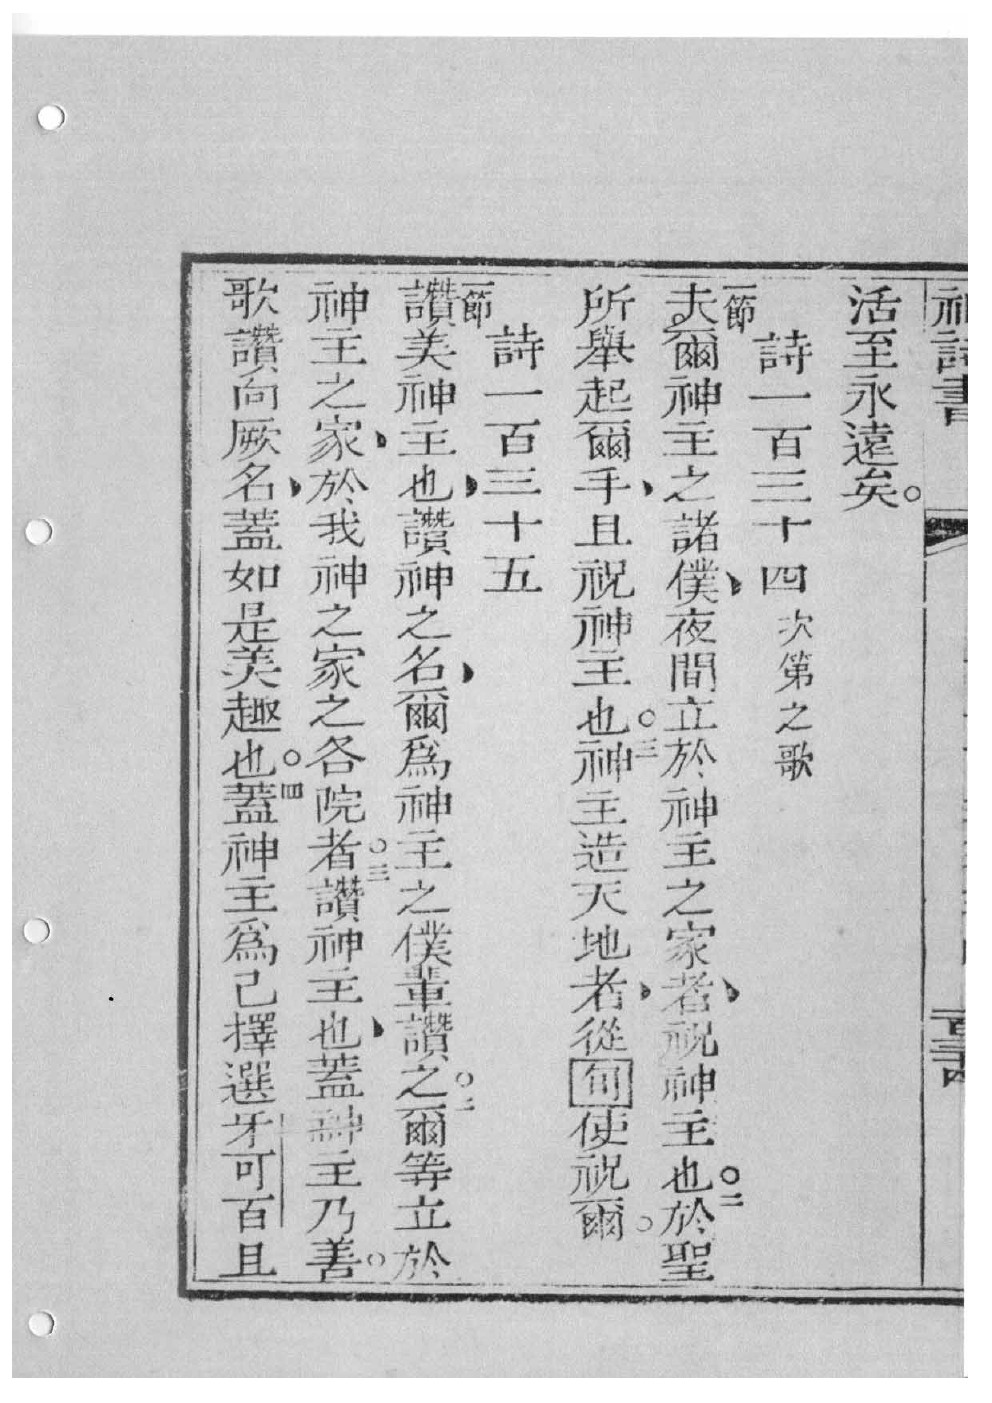 神詩書
活至永遠矣。
詩一百三十四 次第之歌
一節 夫爾神主之諸僕、夜間立於神主之家者、祝神主也。二於聖
所舉起爾手、且祝神主也。三神主造天地者、從旬使祝爾。
詩一百三十五
一節 讚美神主也、讚神之名、爾爲神主之僕輩讚之。二爾等立於
神主之家、於我神之家之各院者。三讚神主也、蓋神主乃善。
歌讚向厥名、蓋如是美趣也。四蓋神主爲己擇選牙可百且